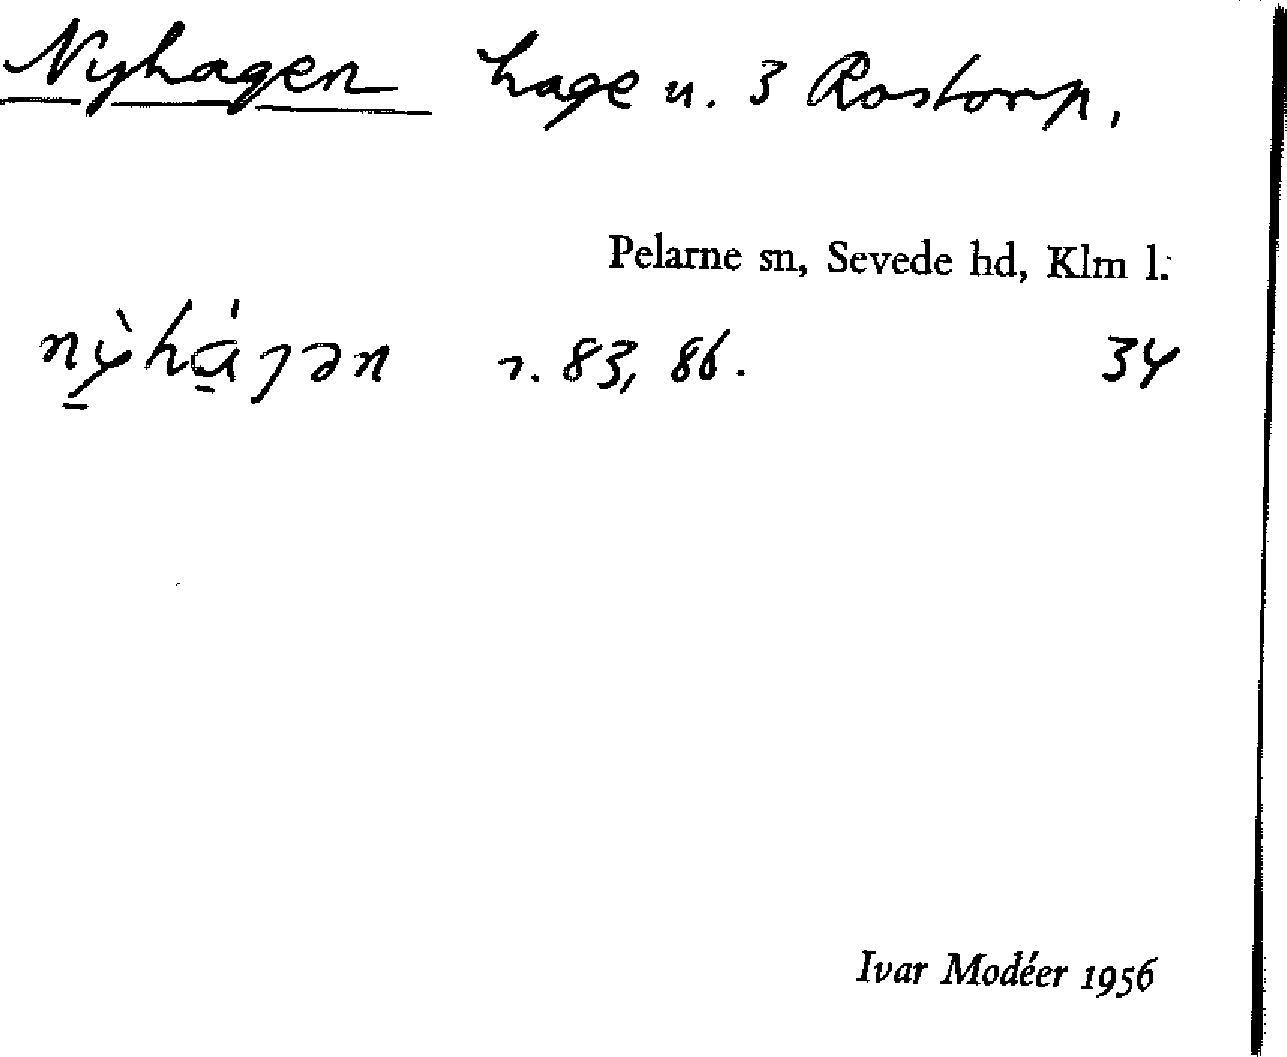 Nyhagen hage u. 3 Rostorp.
Pelarne sn, Sevede hd, Klm l.
nỳ̠há̠ɡən r. 83, 86. 34
Ivar Modéer 1956